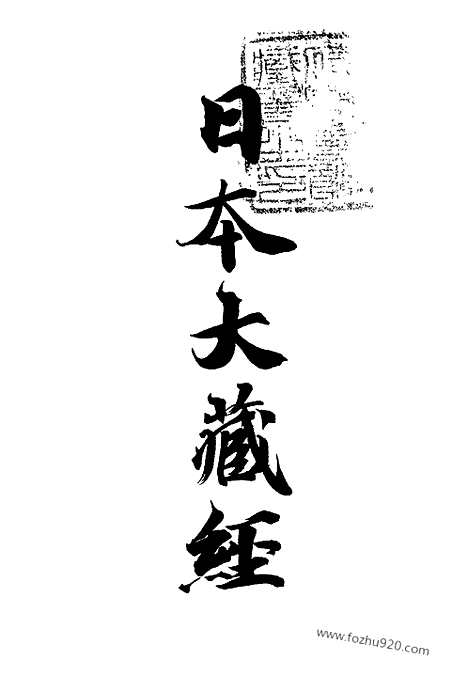 日本大藏經
www.fozhu920.com